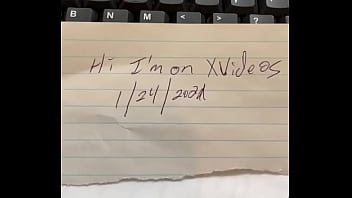 B N M < > ?
Hi I'm on XVideos
1/24/2021